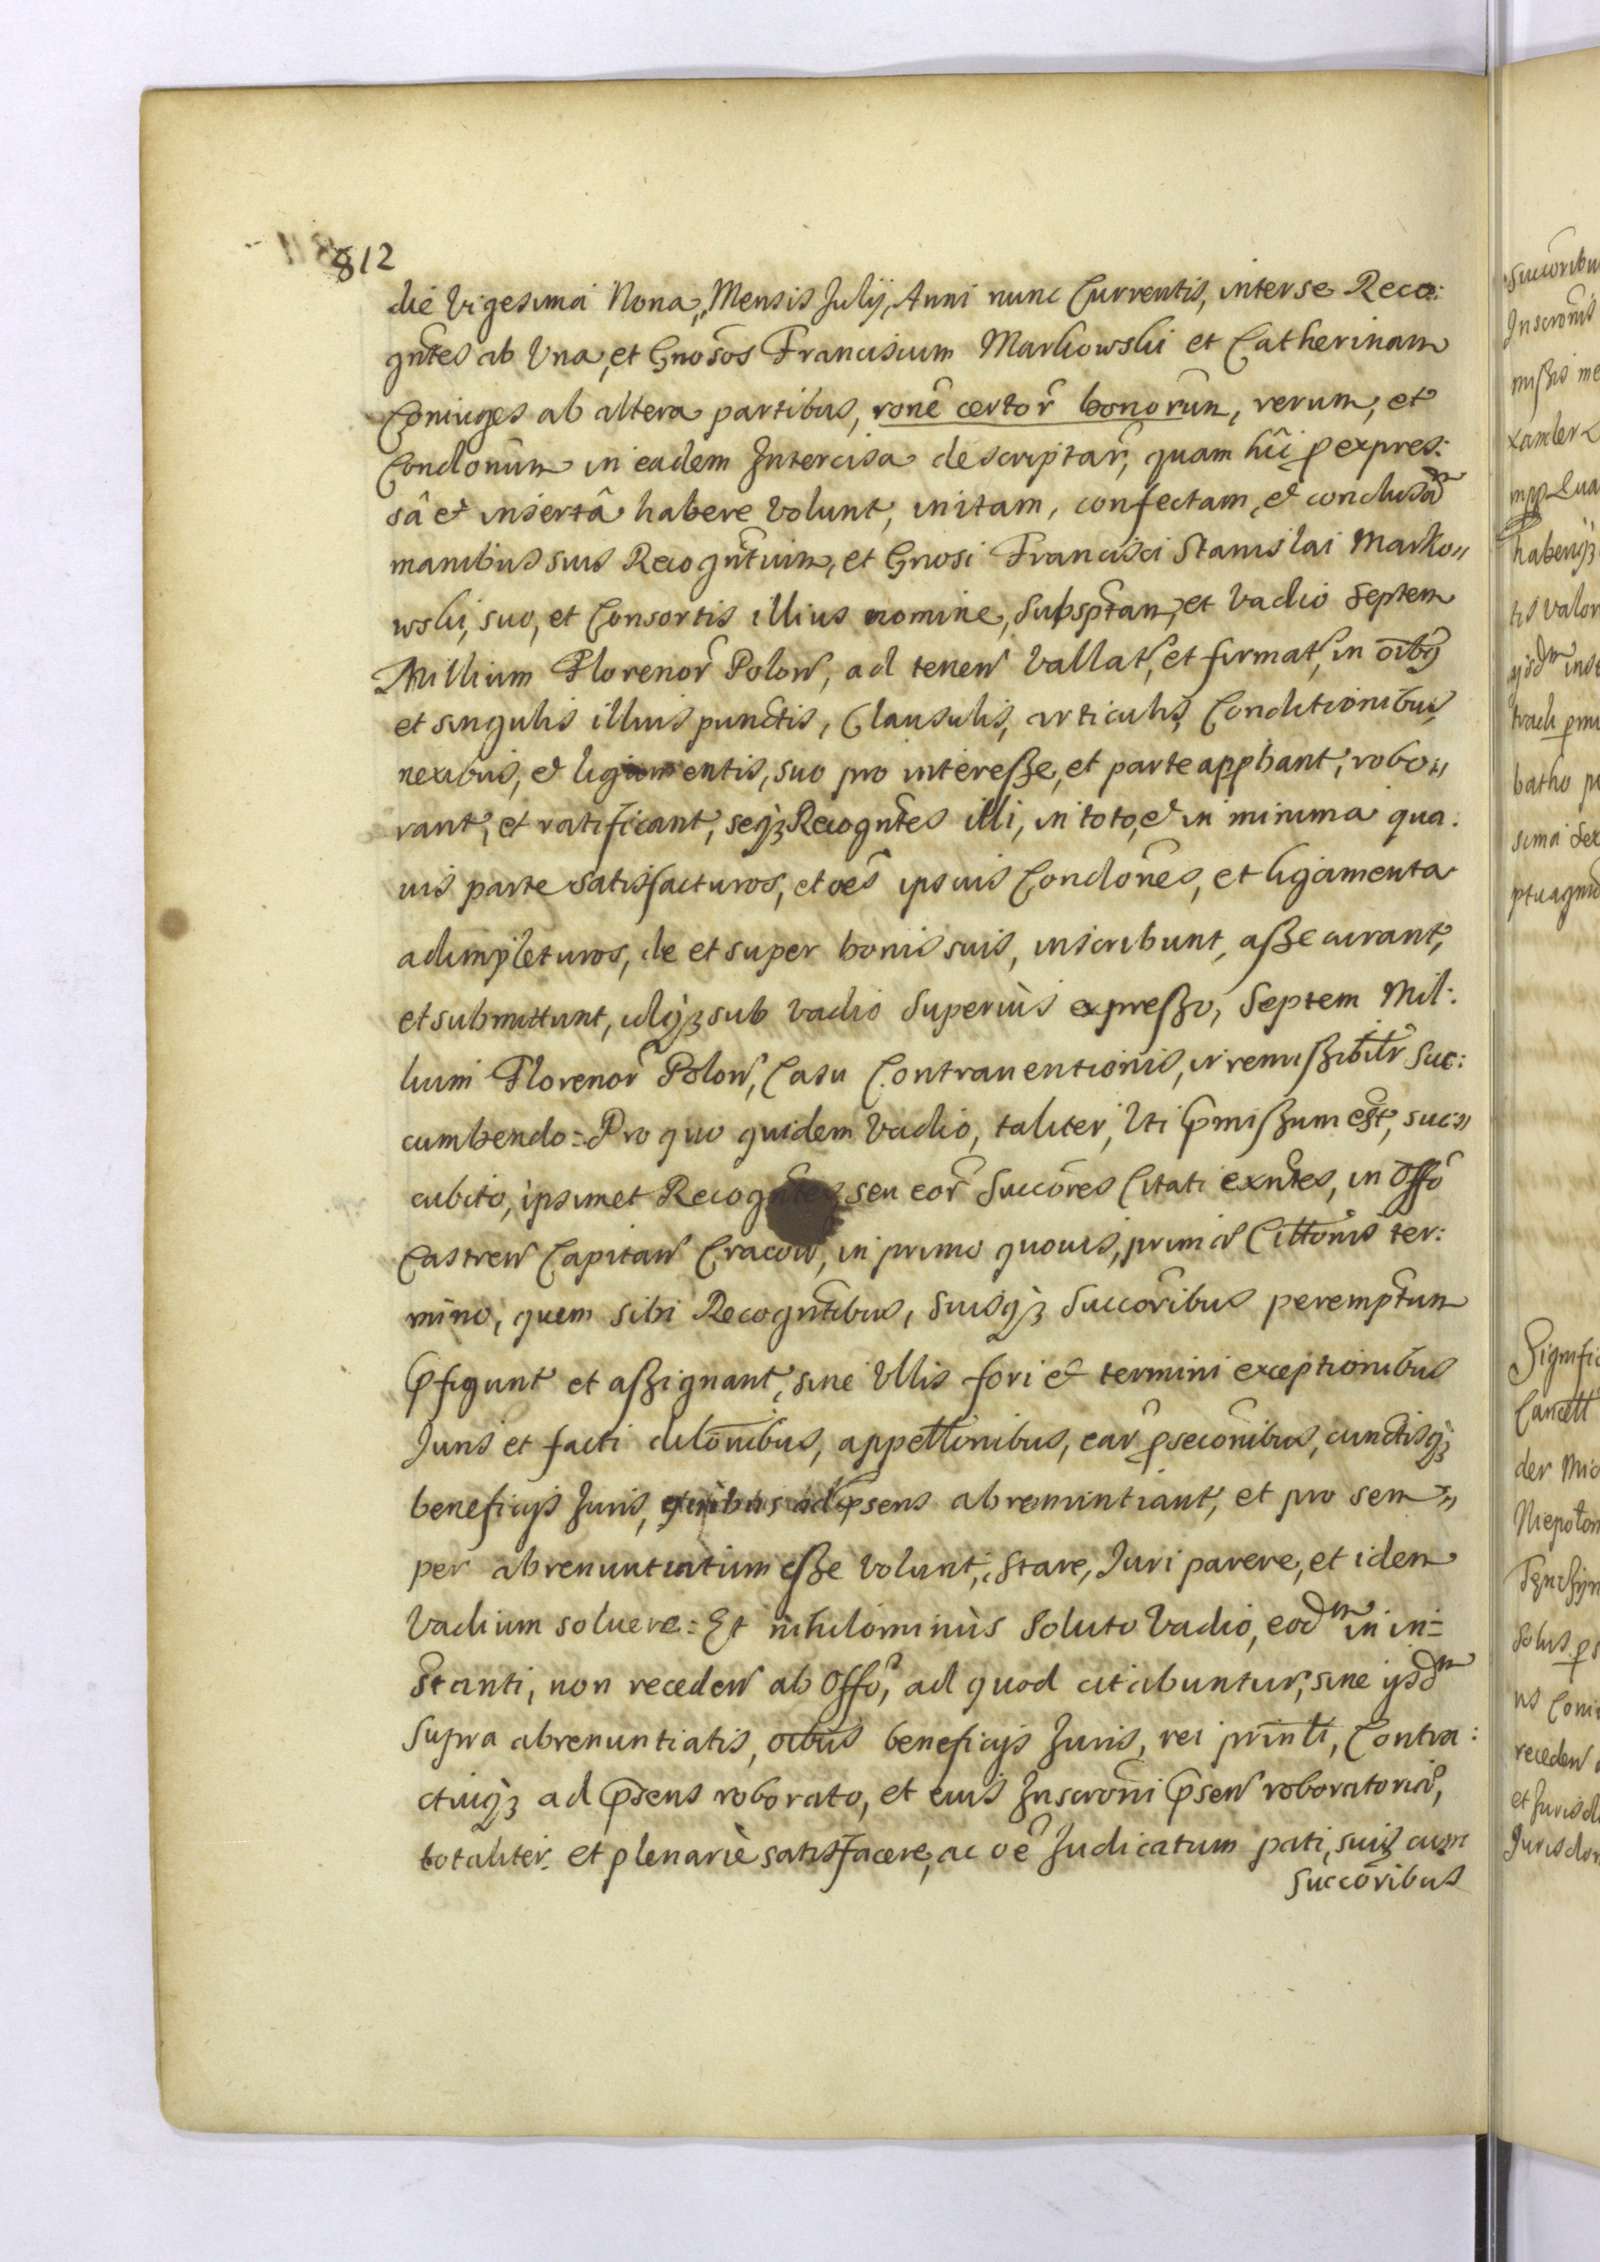 812
die Vigesima Nona, Mensis Julij, Anni nunc Currentis, inter se Reco:
gñtes ab Una, et Gnosos Franciscum Markowski et Catherinam
Coniuges ab altera partibus, rōne certor̃ bonorum, rerum, et
Condonũm in eadem Intercisa descriptar̃, quam hîc p expres:
sâ et insertâ habere Volunt, initam, confectam, et conclusam
manibus suis Recogñtium, et Gnosi Francisci Stanislai Marko„
wski, suo, et Consortis illius nomine, Subsptam, et Vadio Septem
Millium Florenor̃ Polon̄, ad tenen̄ Vallat, et firmat, in oĩbq
et singulis illius punctis, Clausulis, articulis, Conditionibus,
nexibus, et ligamentis, suo pro interesse, et parte approbant, robo„
rant, et ratificant, seqȝ Recogñtes illi, in toto, et in minima qua:
uis parte satisfacturos, et oẽs ipsius Condõnes, et ligamenta
adimpleturos, de et super bonis suis, inscribunt, assecurant,
et submittunt, idqȝ sub Vadio Superiùs expresso, Septem Mil:
lium Florenor̃ Polon̄, Casu Contrauentionis, irremissibilr̃ Suc:
cumbendo: Pro quo quidem Vadio, taliter, Uti p̃missum est, suc„
cubito, ipsimet Recogñtes, seu eor̃ Succores Citati exñtes, in Offõ
Castren̄ Capitan̄ Cracoῡ, in primo quouis, primæ Citt̃onis ter:
mino, quem sibi Recogñtibus, Suisqȝ Succõribus peremptum
p̃figunt et assignant, sine Ullis fori et termini exceptionibus
Juris et facti dilõnibus, appell̃onibus, ear̃ p̃secõnibus, cunctisqȝ
beneficijs Juris, quibus ad p̃sens abrenuntiant, et pro sem„
per abrenuntiatum esse Volunt, Stare, Juri parere, et idem
Vadium soluere: Et nihilominùs Soluto Vadio, eodm in in=
stanti, non receden̄ ab Offõ, ad quod citabuntur, sine ijsdm
Supra abrenuntiatis, oĩbus beneficijs Juris, rei prinĩl, Contra:
ctuiqȝ ad p̃sens roborato, et eius Inscrõni p̃sen̄ roboratoriæ,
totaliter et plenariè satisfacere, ac oẽ Judicatum pati, suis cum
Succõribus